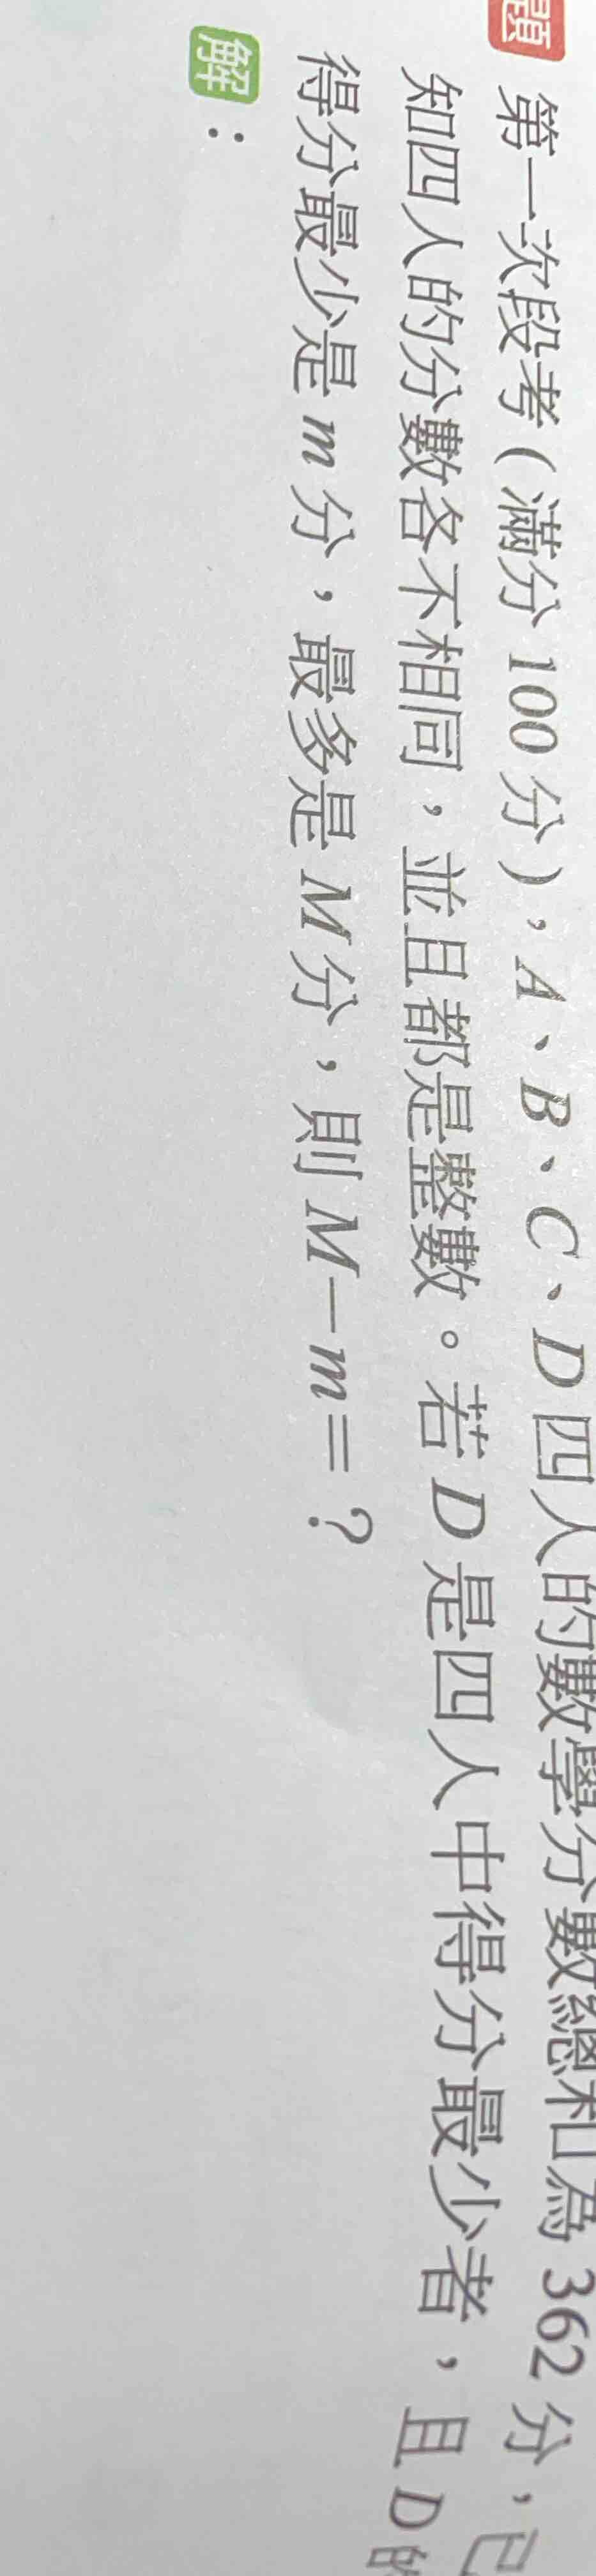 題 第一次段考(滿分100分),A、B、C、D四人的數學分數總和為362分,已
知四人的分數各不相同,並且都是整數。若D是四人中得分最少者,且D的
得分最少是m分,最多是M分,則M-m=?
解: